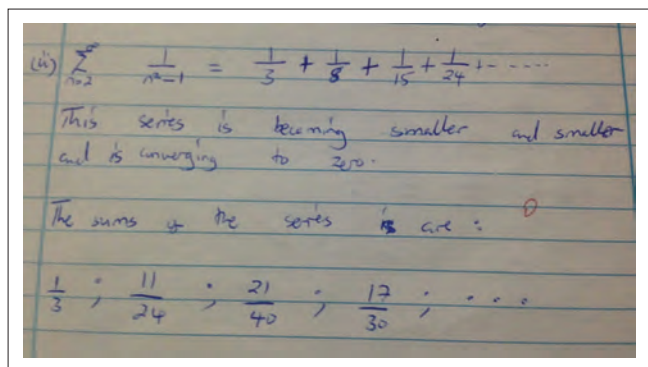 (ii) ∞ Σ n=2 1/(n²-1) = 1/3 + 1/8 + 1/15 + 1/24 + - ....
This series is becoming smaller and smaller
and is converging to zero.
0
The sums of the series is are :
1/3 ; 11/24 ; 21/40 ; 17/30 ; . . .